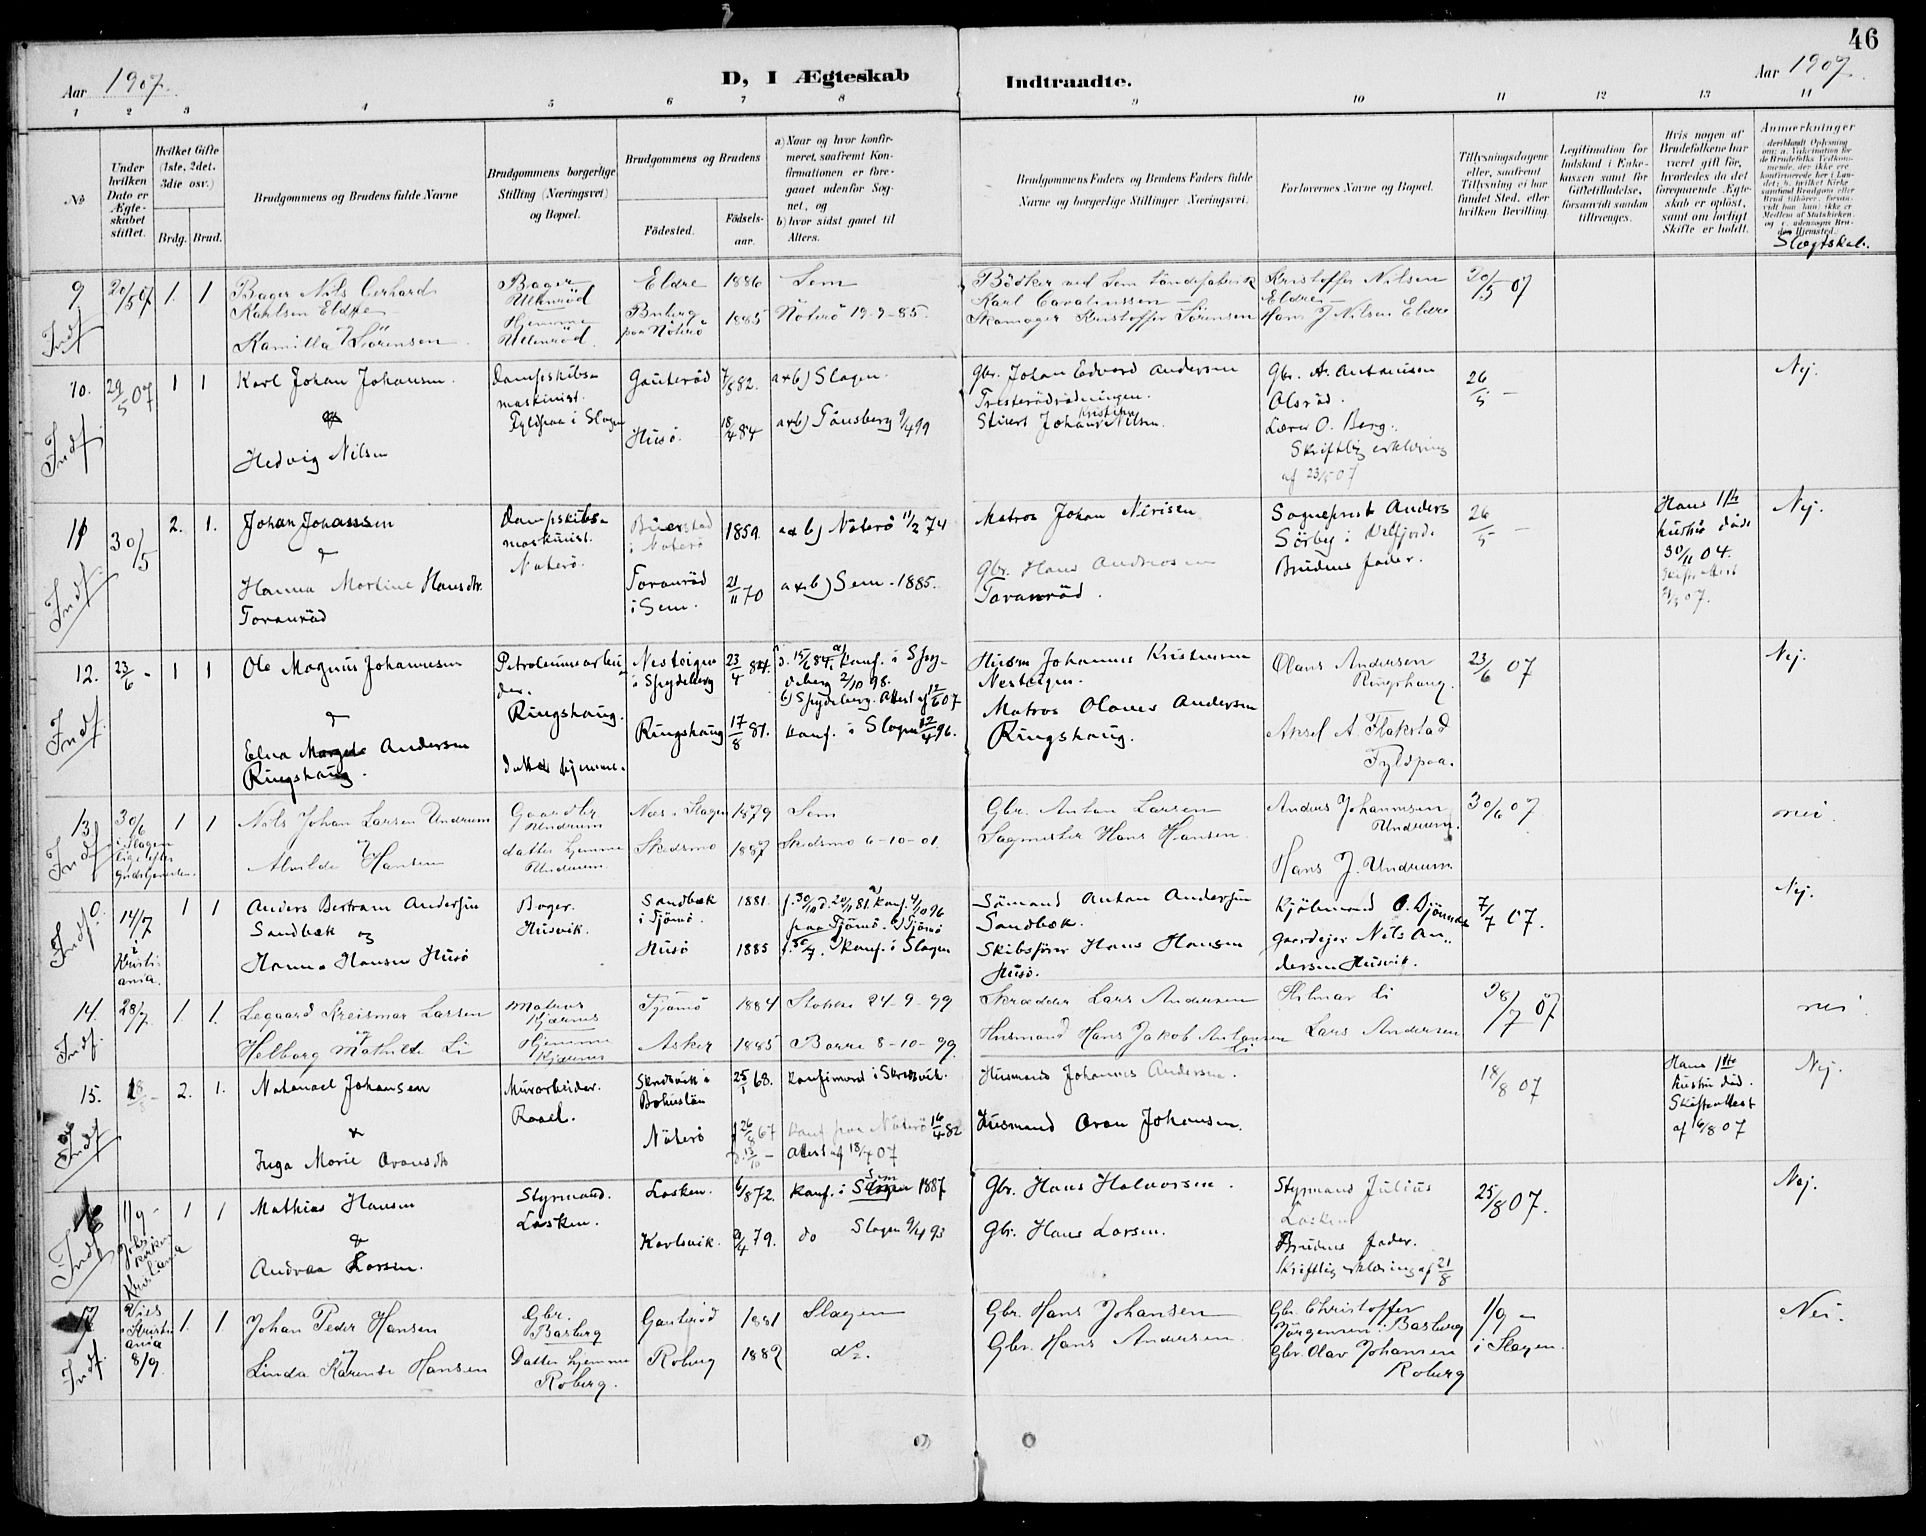 46
Aar 1907.
D, I Ægteskab Indtraadte.
Aar 1907.
1 2 3 4 5 6 7 8 9 10 11 12 13 14
No
Under hvilken Dato er Ægteskabet stiftet.
Hvilket Gifte (1ste, 2det, 3die osv.)
Brdg. Brud.
Brudgommens og Brudens fulde Navne
Brudgommens borgerlige Stilling (Næringsvei) og Bopæl.
Brudgommens og Brudens
Fødested.
Fødselsaar.
a) Naar og hvor konfirmeret, saafremt Konfirmationen er foregaaet udenfor Sognet, og
b) hvor sidst gaaet til Alters.
Brudgommens Faders og Brudens Faders fulde Navne og borgerlige Stillinger (Næringsvei)
Forlovernes Navne og Bopæl.
Tillysningsdagene eller, saafremt Tillysning ei har fundet Sted, efter hvilken Bevilling.
Legitimation for Indskud i Enkekassen samt for Giftetilladelse, forsaavidt saadan tiltrænges.
Hvis nogen af Brudefolkene har været gift før, hvorledes da det foregaaende Ægteskab er opløst, samt om lovligt Skifte er holdt.
Anmærkninger
Slægtskab.
9 20/5 07 1 1
Indf
Bager Nils Gerhard
Karlsen Eldre
Kamilla Sørensen
Bager
Ullenrød
Hjemme
Ullenrød.
Eldre 1886 Sem
paa Nøterø 1885 Nøterø 19-9-85.
Karl
Skomager Kristoffer Sørensen
Kristoffer Nilsen
Eldre
Hans J Nilsen Eldre
20/5 07
10. 29/5 07 1 1
Indf.
Karl Johan Johansen.
&
Hedvig Nilsen
Dampskibsmaskinist.
Fyldpaa i Slagen
Gauterød 7/8 82. a+b) Slagen.
Husø. 18/4 84 a+b) Tønsberg 9/4 99
Gbr. Johan Edvard Andersen
Stuert Johan Kristian Nilsen.
Gbr. A. Antonisen
Olsrød.
Lærer O. Berg.
Skriftlig erklæring
af 23/5 07
26/5 –
Nej.
11 30/5 2. 1.
Indf
Johan Johansen
&
Hanna Martine Hansdtr.
Toranrød
Dampskibsmaskinist.
Nøterø.
i Nøterø 1859. a+b) Nøterø 11/2 74
Toranrød
i Sem. 21/11 70 a+b) Sem. 1885.
Matros Johan Nirisen
Gbr. Hans Andreasen
Toranrød.
Sogneprest Anders
Sørby i Velfjord.
Brudens fader.
26/5 –
Hans 1ste
hustru døde
30/11 04.
Nej.
12. 23/6 – 1 1
Indf.
Ole Magnus Johannesen
&
Elna Andersen
Ringshaug.
Petroleumsarbeider.
Ringshaug.
datter hjemme.
Nesteigen
i Spydeberg 23/4 84.
d. 15/6 84. a) Konf. i Spydeberg 2/10 98.
b) Spydeberg. Attest af 12/6 07
Ringshaug 17/8 81. Konf. i Slagen 12/4 96.
Husm Johannes Kristensen
Nesteigen.
Matros Olaves Andersen
Ringshaug.
Olaus Andersen
Ringshaug.
Aksel A. Flakstad
Fyldpaa.
23/6 07
Nej.
13. 30/6 1 1
i Slagen
Indf
Nils Johan Larsen Undrum
og
Alvilde Hansen
Gaardbr
Undrum
datter hjemme
Undrum
Næs i Slagen 1879 Sem
Skedsmo 1887 Skedsmo 6-10-01.
Gbr. Anton Larsen
Sagmester Hans Hansen.
Anders Johannesen
Undrum.
Hans J. Undrum
30/6 07
nei.
14/7
i Kristiania.
1 1
Indf.
Anders Bertram Andersen
Sandbæk og
Hanna Hansen Husø
Bager.
Husvik.
Sandbæk
i Tjømø. 1881.
paa Tjømø. b) Tjømø
Husø 1885 Konf. i Slagen
Sømand Anton Andersen
Sandbæk.
Skibsfører Hans Hansen
Husø.
Kjøbmand O. Bjønnes
gaardejer Nils Andersen Husvik.
7/7 07.
Nej.
14. 28/7. 1 1.
Indf.
Legaard Kreismar Larsen
og
Helborg Mathilde Li
Matros
Kjærnes
Hjemme
Kjærnes
Tjømø 1884 Stokke 24-9-99
Asker 1885 Borre 8-10-99.
Skrædder Lars Andersen
Husmand Hans Jakob Antonsen
Li
Hilmar Li
Lars Andersen
28/7 07
nei.
15. 18/8 – 2. 1.
Indf
Natanael Johansen
&
Inga Marie Aronsdtr
Murarbeider.
Raael.
Bohuslän 25/1 68.
Nøterø f 26/8 67 Konf paa Nøterø 16/4 82
Attest af 18/7 07
Husmand Johannes Andersen.
Husmand Aron Johansen.
18/8 07
Hans 1ste
hustru død.
Skifteattest
af 6/8 07
Nej.
16 1/9 – 1 1
Kristiania
Indf
Mathias Hansen
&
Andrea Larsen.
Styrmand.
Løsken.
Løsken. 6/8 72. Konf. i Sem 1887
Karlsvik. 2/4 79. do Slagen 9/4 93
Gbr. Hans Halvorsen.
Gbr. Hans Larsen.
Styrmand Julius
Løsken
Brudens fader.
Skriftlig erklæring af 21/8
25/8 07.
Nej.
17 Vies
i Kristiania
8/9. 1. 1
Indf.
Johan Peder Hansen
og
Linda Karense Hansen
Gbr.
Basberg
Datter hjemme
Roberg.
Gauterød 1881 Slagen
Roberg 1882 do.
Gbr. Hans Johansen
Gbr. Hans Andersen.
Gbr. Christoffer
Jørgensen i Basberg
Gbr. Olav Johansen
Roberg
1/9 –
i Slagen.
Nei.